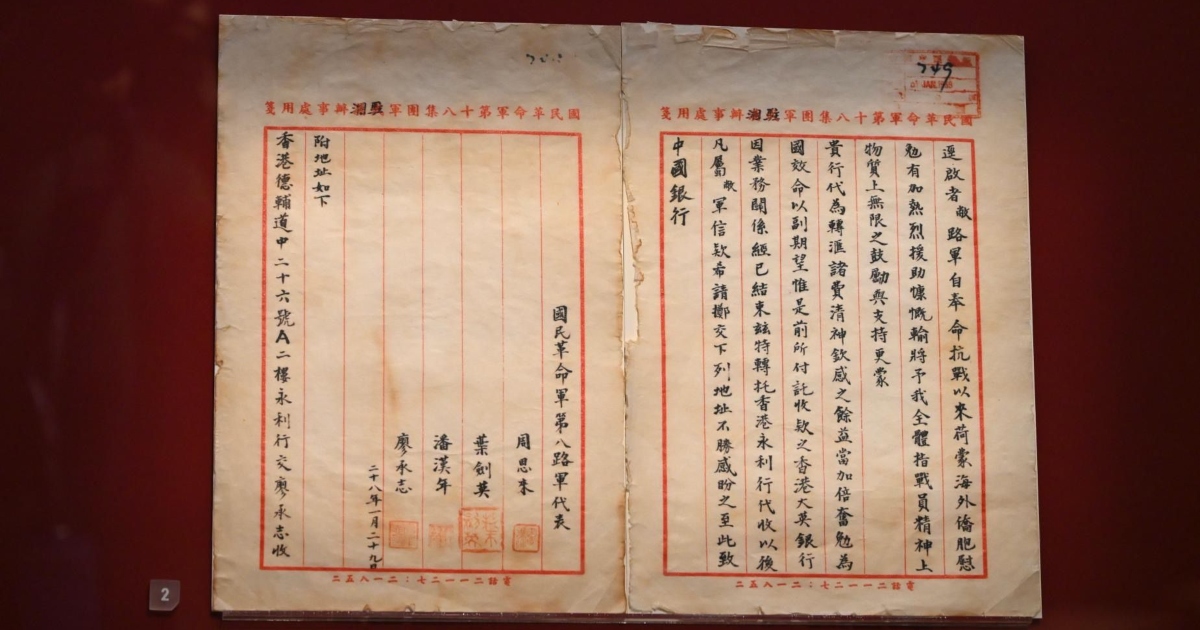 749
國民革命軍第十八集團軍駐湘辦事處用箋
逕啟者敝路軍自奉命抗戰以來荷蒙海外僑胞慰
勉有加熱烈援助慷慨輸將予我全體指戰員精神上
物質上無限之鼓勵與支持更蒙
貴行代為轉滙諸費清神欽感之餘益當加倍奮勉為
國效命以副期望惟是前所付託收欵之香港大英銀行
因業務關係經已結束茲特轉托香港永利行代收以後
凡屬敝軍信欵希請擲交下列地址不勝感盼之至此致
中國銀行
電話二一一二七：二一八五二
國民革命軍第十八集團軍駐湘辦事處用箋
國民革命軍第八路軍代表
周恩来
葉劍英
潘漢年
廖承志
二十八年一月二十九日
附地址如下
香港德輔道中二十六號A二樓永利行交廖承志收
電話二一一二七：二一八五二
2